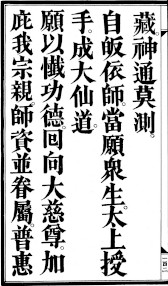 藏神通莫測。
自皈依師。當願衆生。太上授
手。成大仙道。
願以懺功德。回向大慈尊。加
庇我宗親。師資並眷屬。普惠